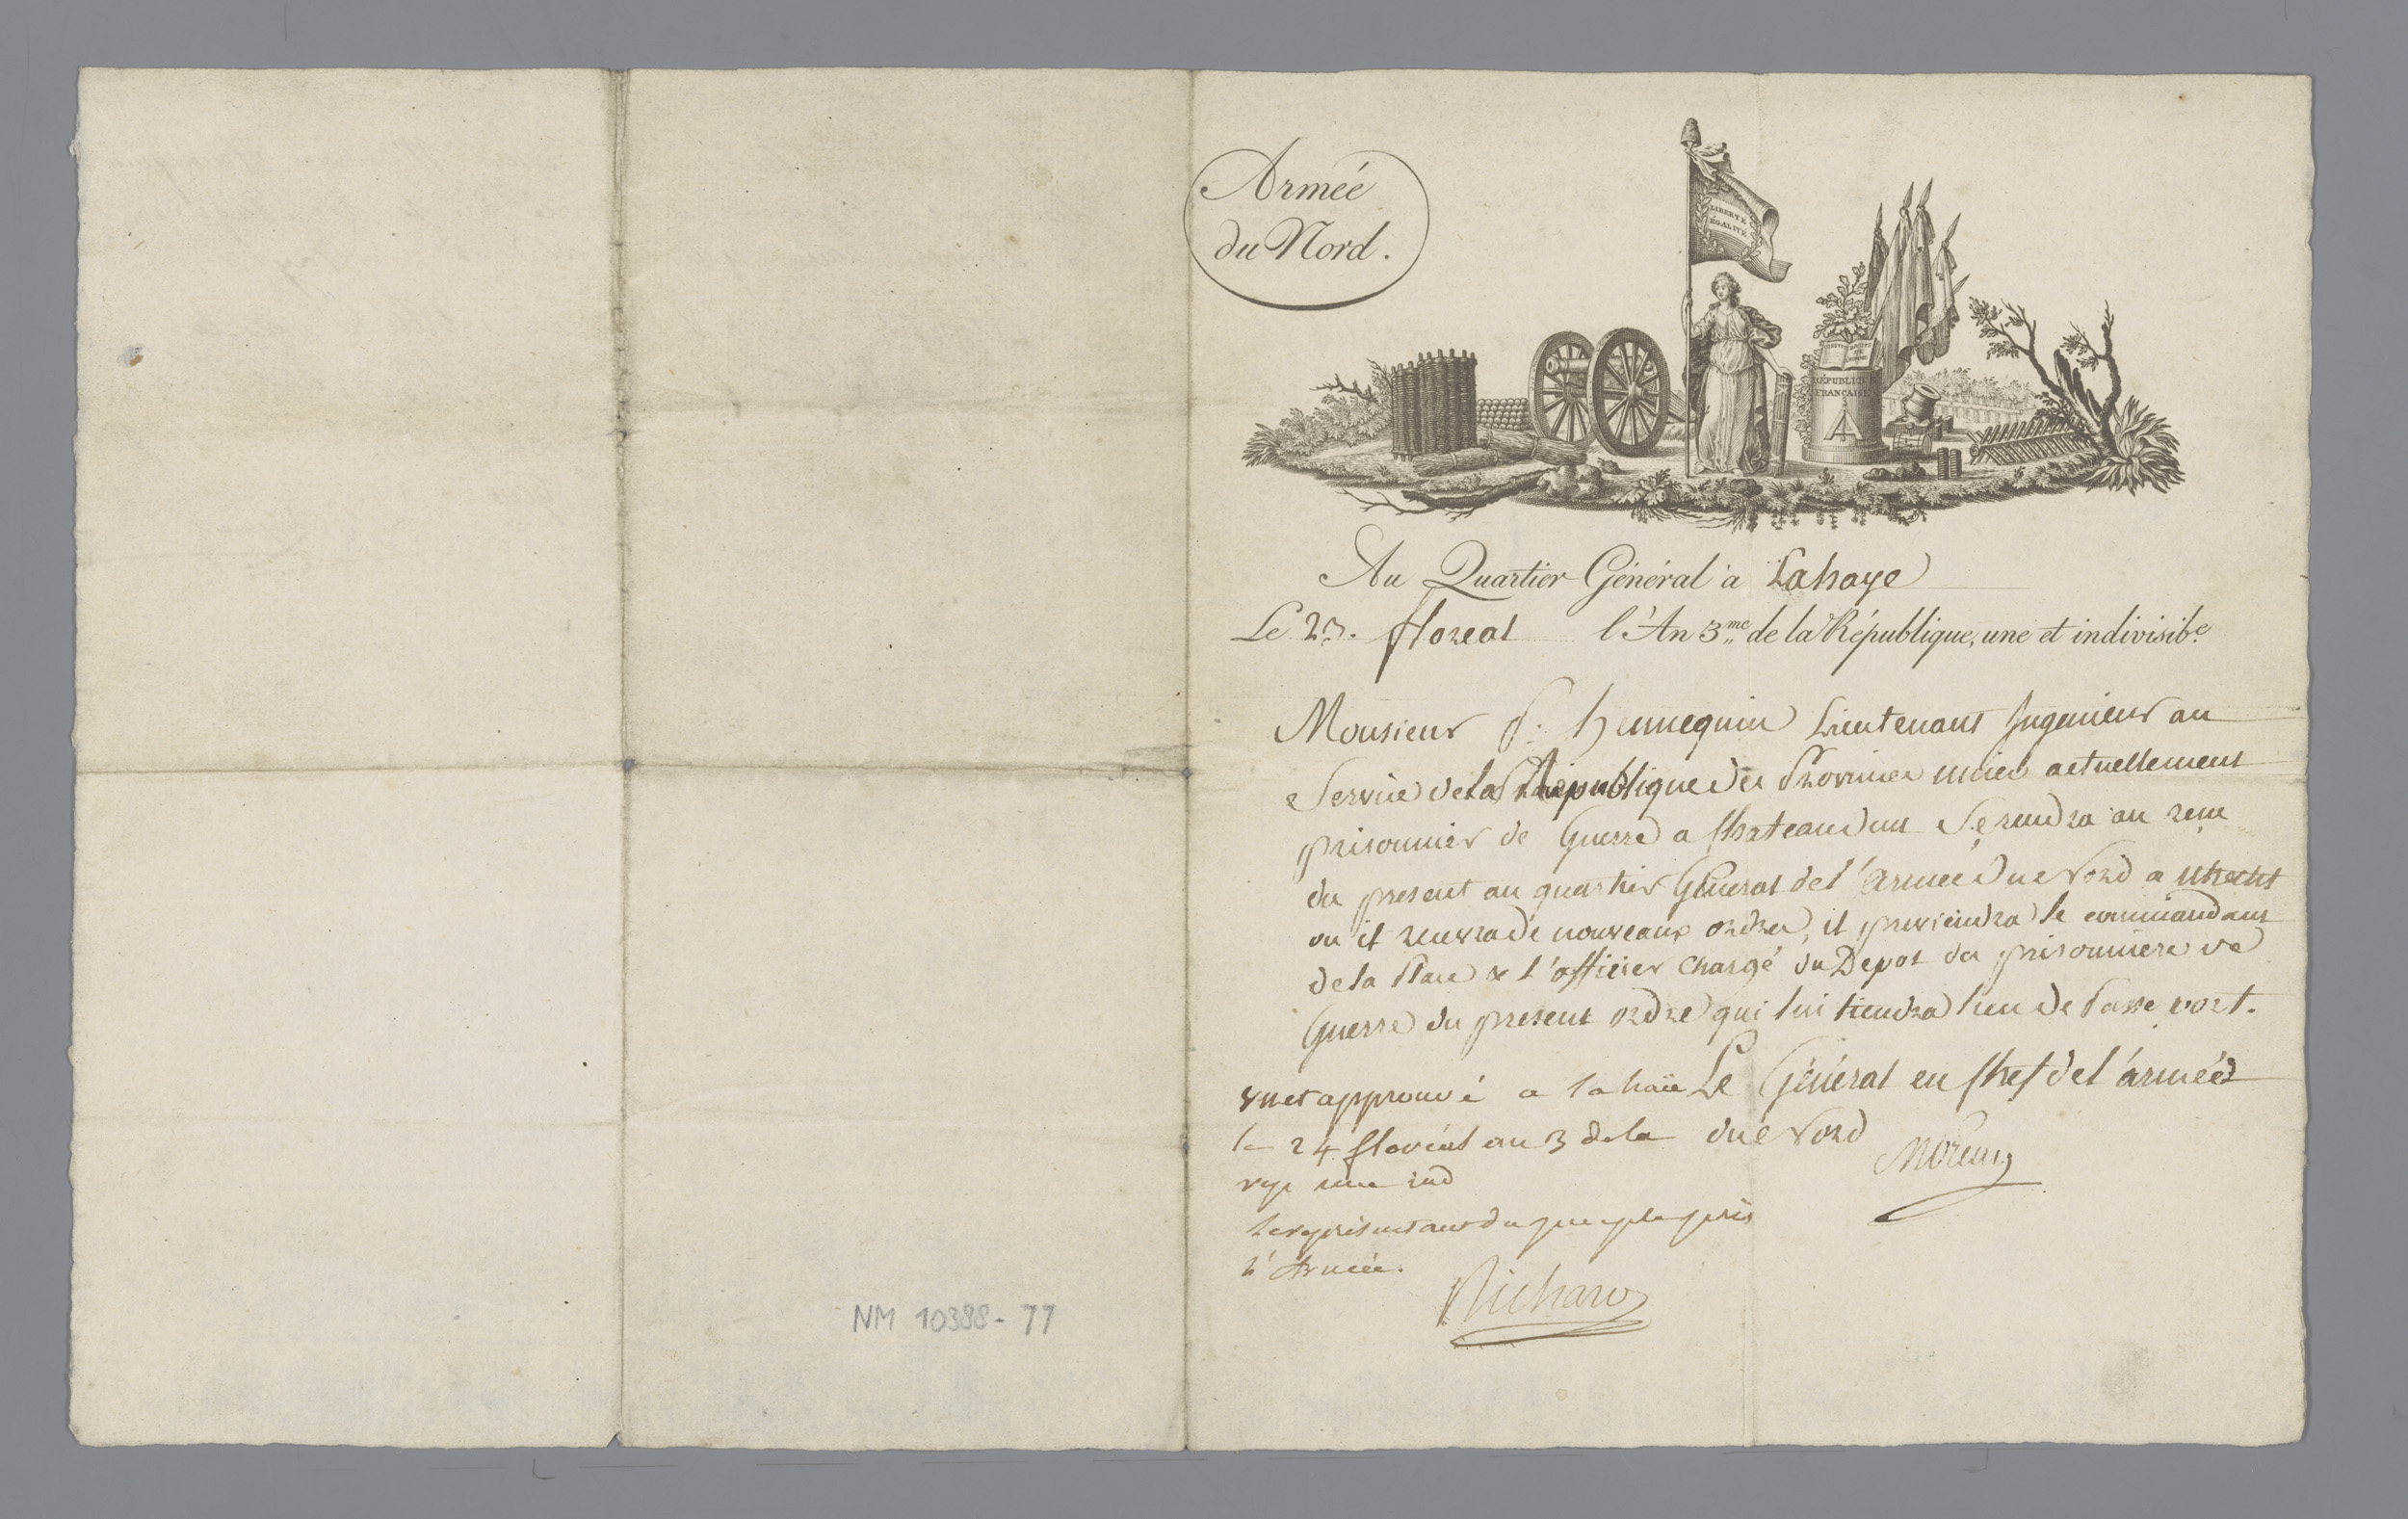 Armée
du Nord.
LIBERTÉ
ÉGALITÉ
RÉPUBLIQUE
FRANCAISE
Au Quartier Général à Lahaye
Le 23. floreal l'An 3.me de la République, une et indivisib.e
Monsieur P. hennequin Lieutenant Ingenieur au
Service de la Republique des Provinces unies actuellement
prisonnier de Guerre a Chateaudun Se rendra au recu
du present au quartier General de l'armée du Nord a utrecht
ou il recevra de nouveaux ordres, il previendra le commandant
de la Place & l'officier chargé du Depot des prisonniers de
Guerre du present ordre qui lui tiendra lieu de Passe port.
Le Général en Chef de l'armée
du Nord
Moreau
vu et approuvé a la haie
le 24 floréal an 3 de la
rep une ind
le représentant du peuple près
l'Armée.
Richard
NM 10388-77